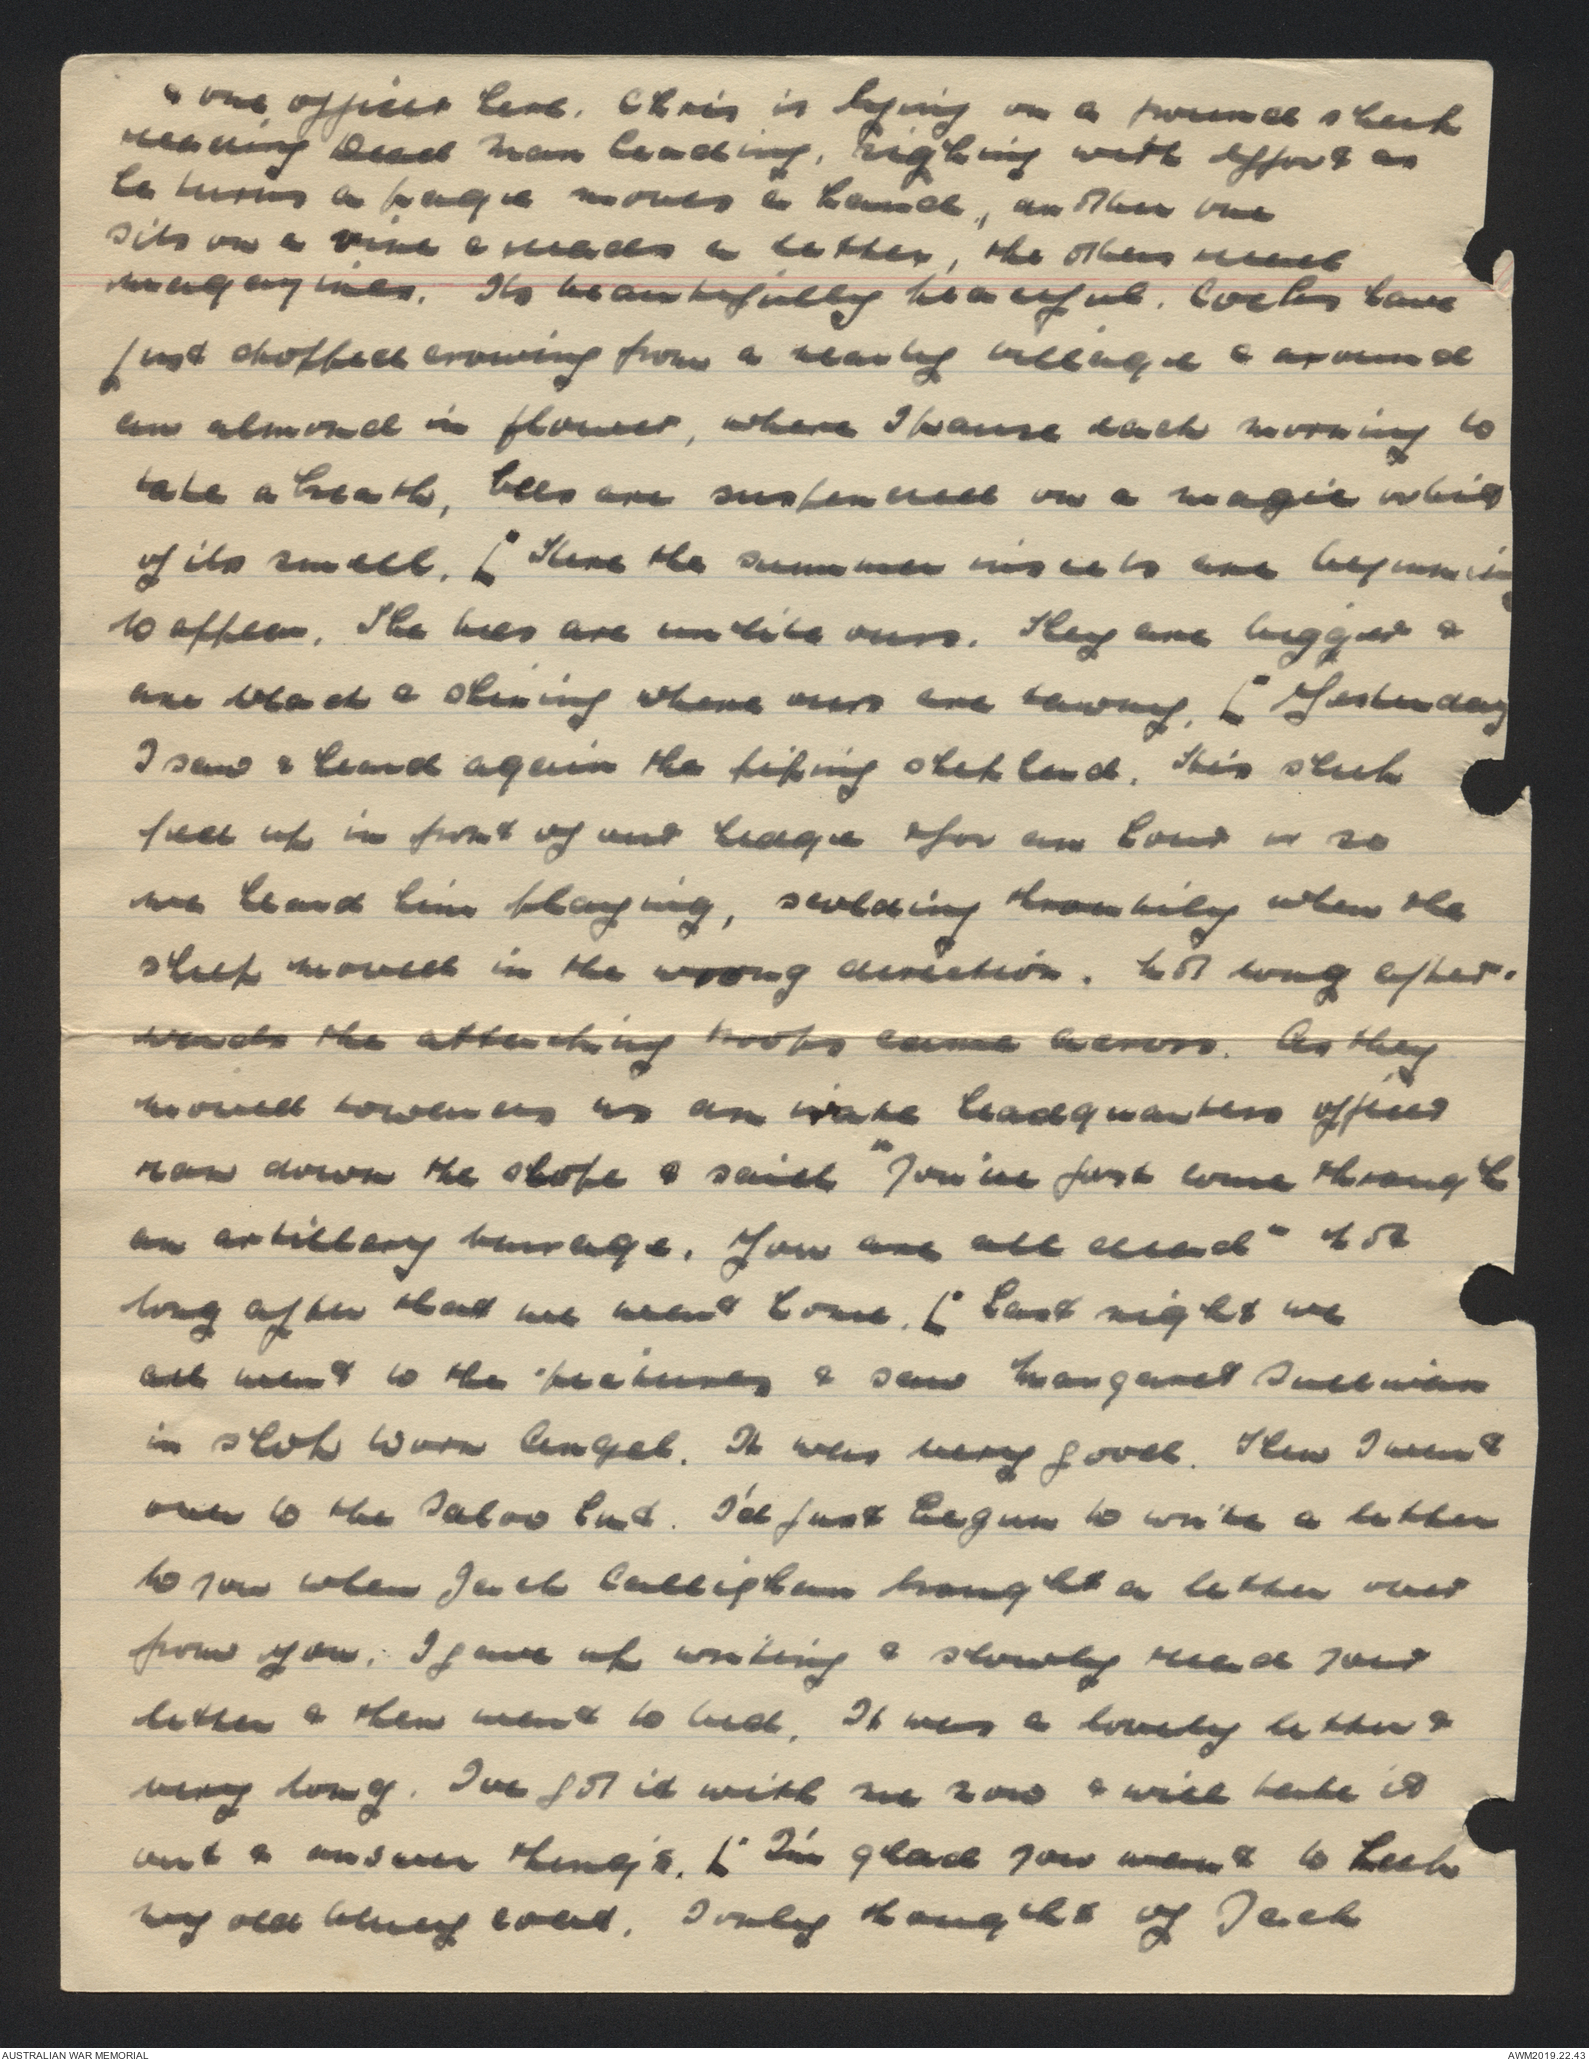 & one officer here. Chris is lying on a ground sheet
reading Dead Man Leading, sighing with effort as
he turns a page moves a hand, another one
sits on a vine & reads a letter, the others read
magazines. Its beautifully peaceful. Cocks have
just stopped crowing from a nearby village & around
an almond in flower, where I pause each morning to
take a breath, bees are suspended on a magic orbit
of its smell. [ Here the summer insects are beginning
to appear. The bees are unlike ours. They are bigger &
are black & shining where ours are tawny. [ Yesterday
I saw & heard again the piping shepherd. His sheep
fed up in front of our hedge & for an hour or so
we heard him playing, scolding throatily when the
sheep moved in the wrong direction. Not long after-
wards the attacking troops came across. As they
moved towards us an irate headquarters officer
ran down the slope & said "You've just come through
an artillery barrage. You are all dead" Not
long after that we went home. [ Last night we
all went to the pictures & saw Margaret Sullivan
in Shop Worn Angel. It was very good. Then I went
over to the Salvo hut. I'd just begun to write a letter
to you when Jack Callighan brought a letter over
from you. I gave up writing & slowly read your
letter & then went to bed. It was a lovely letter &
very long. I've got it with me now & will take it
out & answer things. [ I'm glad you went to
my old coat. I only thought of Jack
AUSTRALIAN WAR MEMORIAL
AWM2019.22.43